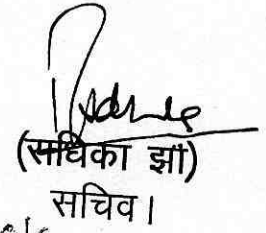 (राधिका झा)
सचिव।